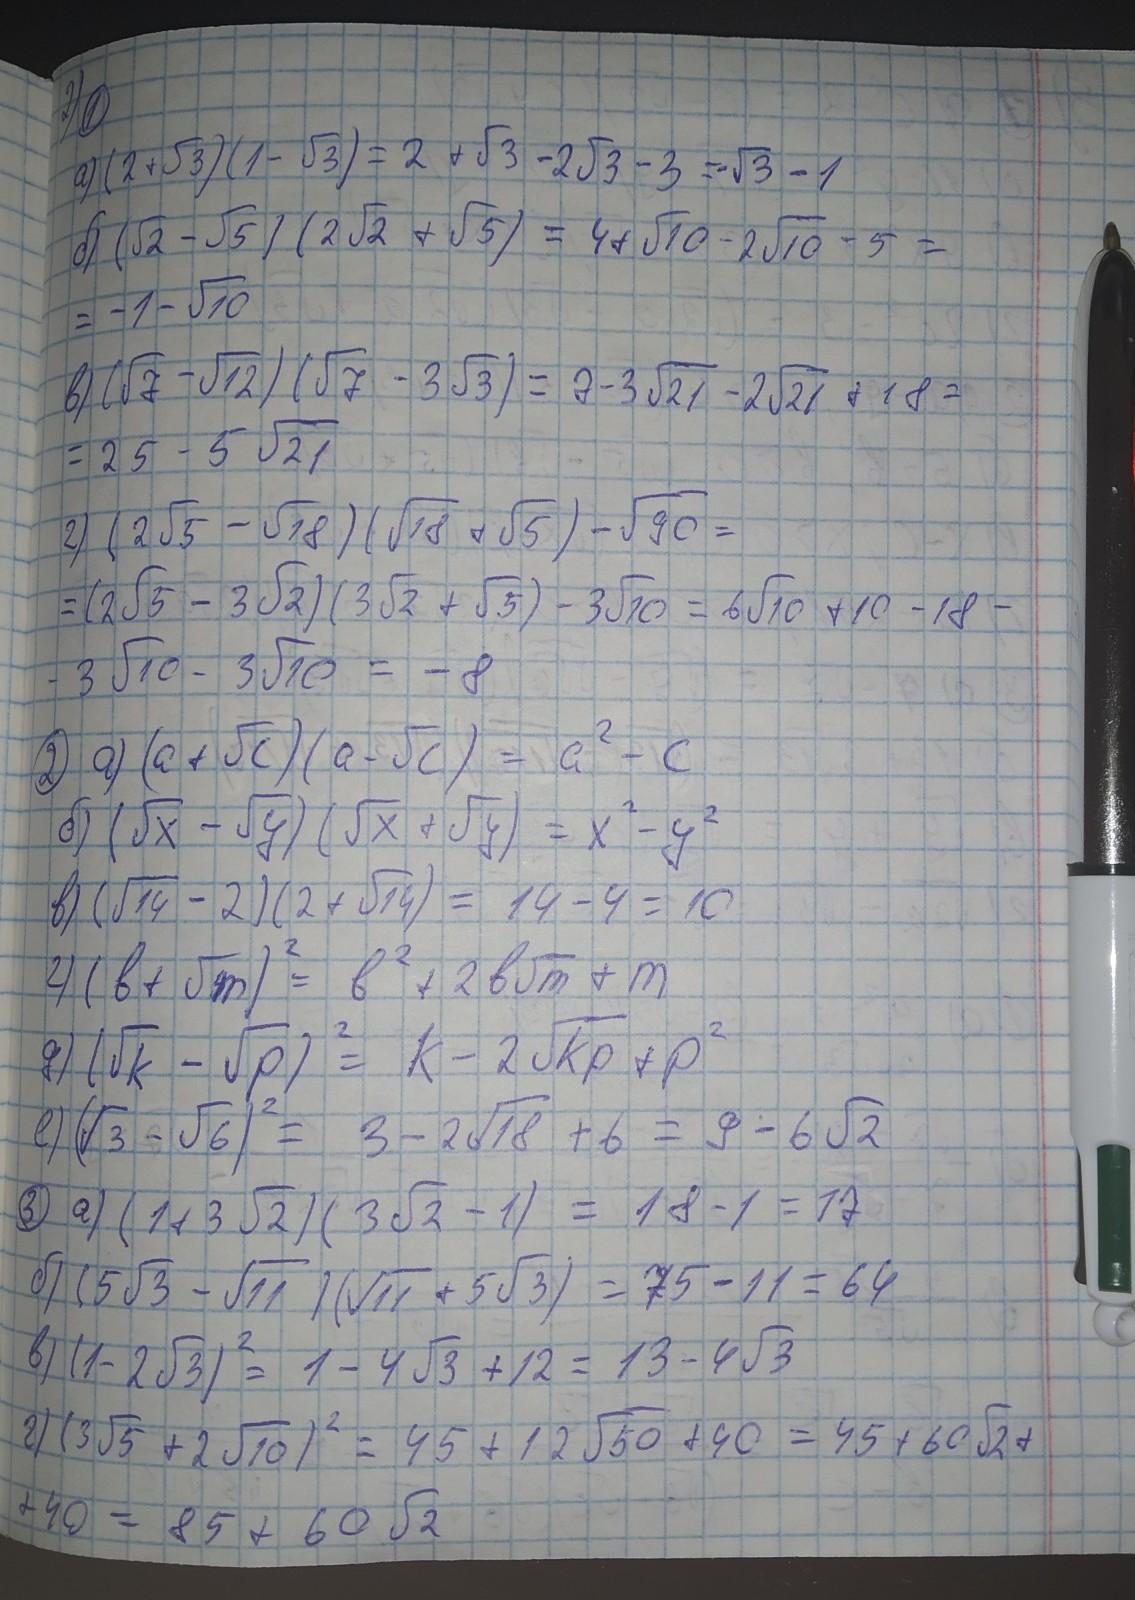 2) ①
а) (2+√3)(1-√3) = 2 + √3 - 2√3 - 3 = -√3 - 1
б) (√2 - √5) (2√2 + √5) = 4 + √10 - 2√10 - 5 =
= -1 - √10
в) (√7 - √12) (√7 - 3√3) = 7 - 3√21 - 2√21 + 18 =
= 25 - 5√21
г) (2√5 - √18) (√18 + √5) - √90 =
= (2√5 - 3√2)(3√2 + √5) - 3√10 = 6√10 + 10 - 18 -
- 3√10 - 3√10 = -8
② а) (a + √c)(a - √c) = a² - c
б) (√x - √y) (√x + √y) = x² - y²
в) (√14 - 2)(2 + √14) = 14 - 4 = 10
г) (b + √m)² = b² + 2b√m + m
д) (√k - √p)² = k - 2√kp + p²
е) (√3 - √6)² = 3 - 2√18 + 6 = 9 - 6√2
③ а) (1 + 3√2)(3√2 - 1) = 18 - 1 = 17
б) (5√3 - √11)(√11 + 5√3) = 75 - 11 = 64
в) (1 - 2√3)² = 1 - 4√3 + 12 = 13 - 4√3
г) (3√5 + 2√10)² = 45 + 12√50 + 40 = 45 + 60√2 +
+ 40 = 85 + 60√2